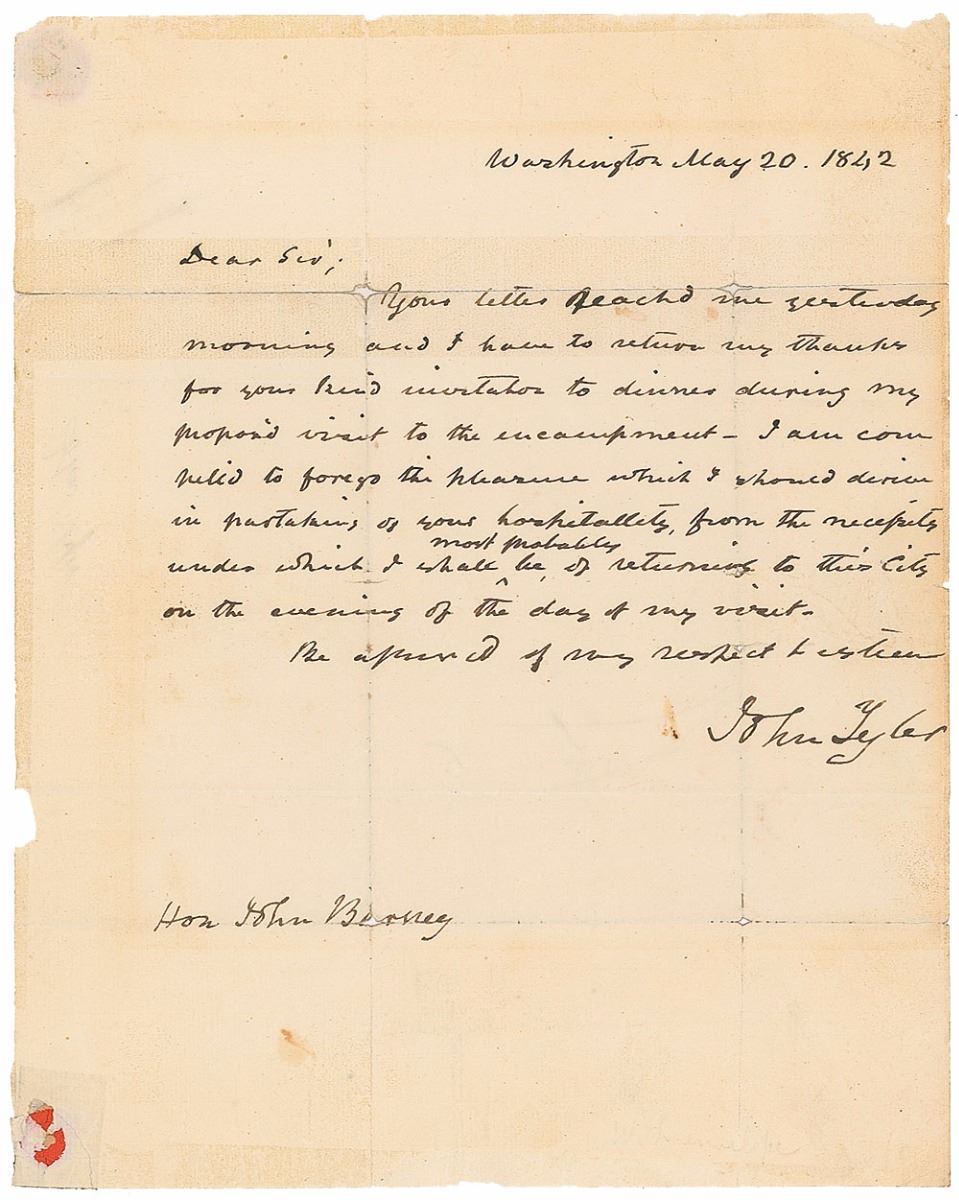 Washington May 20. 1842
Dear Sir,
Your letter Reach'd me yesterday
morning and I have to return my thanks
for your kind invitation to dinner during my
propos'd visit to the encampment - I am com
pell'd to forego the pleasure which I should derive
in partaking of your hospitality, from the necessity
most probably
under which I shall be, of returning to this City
on the evening of the day of my visit -
Be assured of my respect & esteem
John Tyler
Hon John Barney